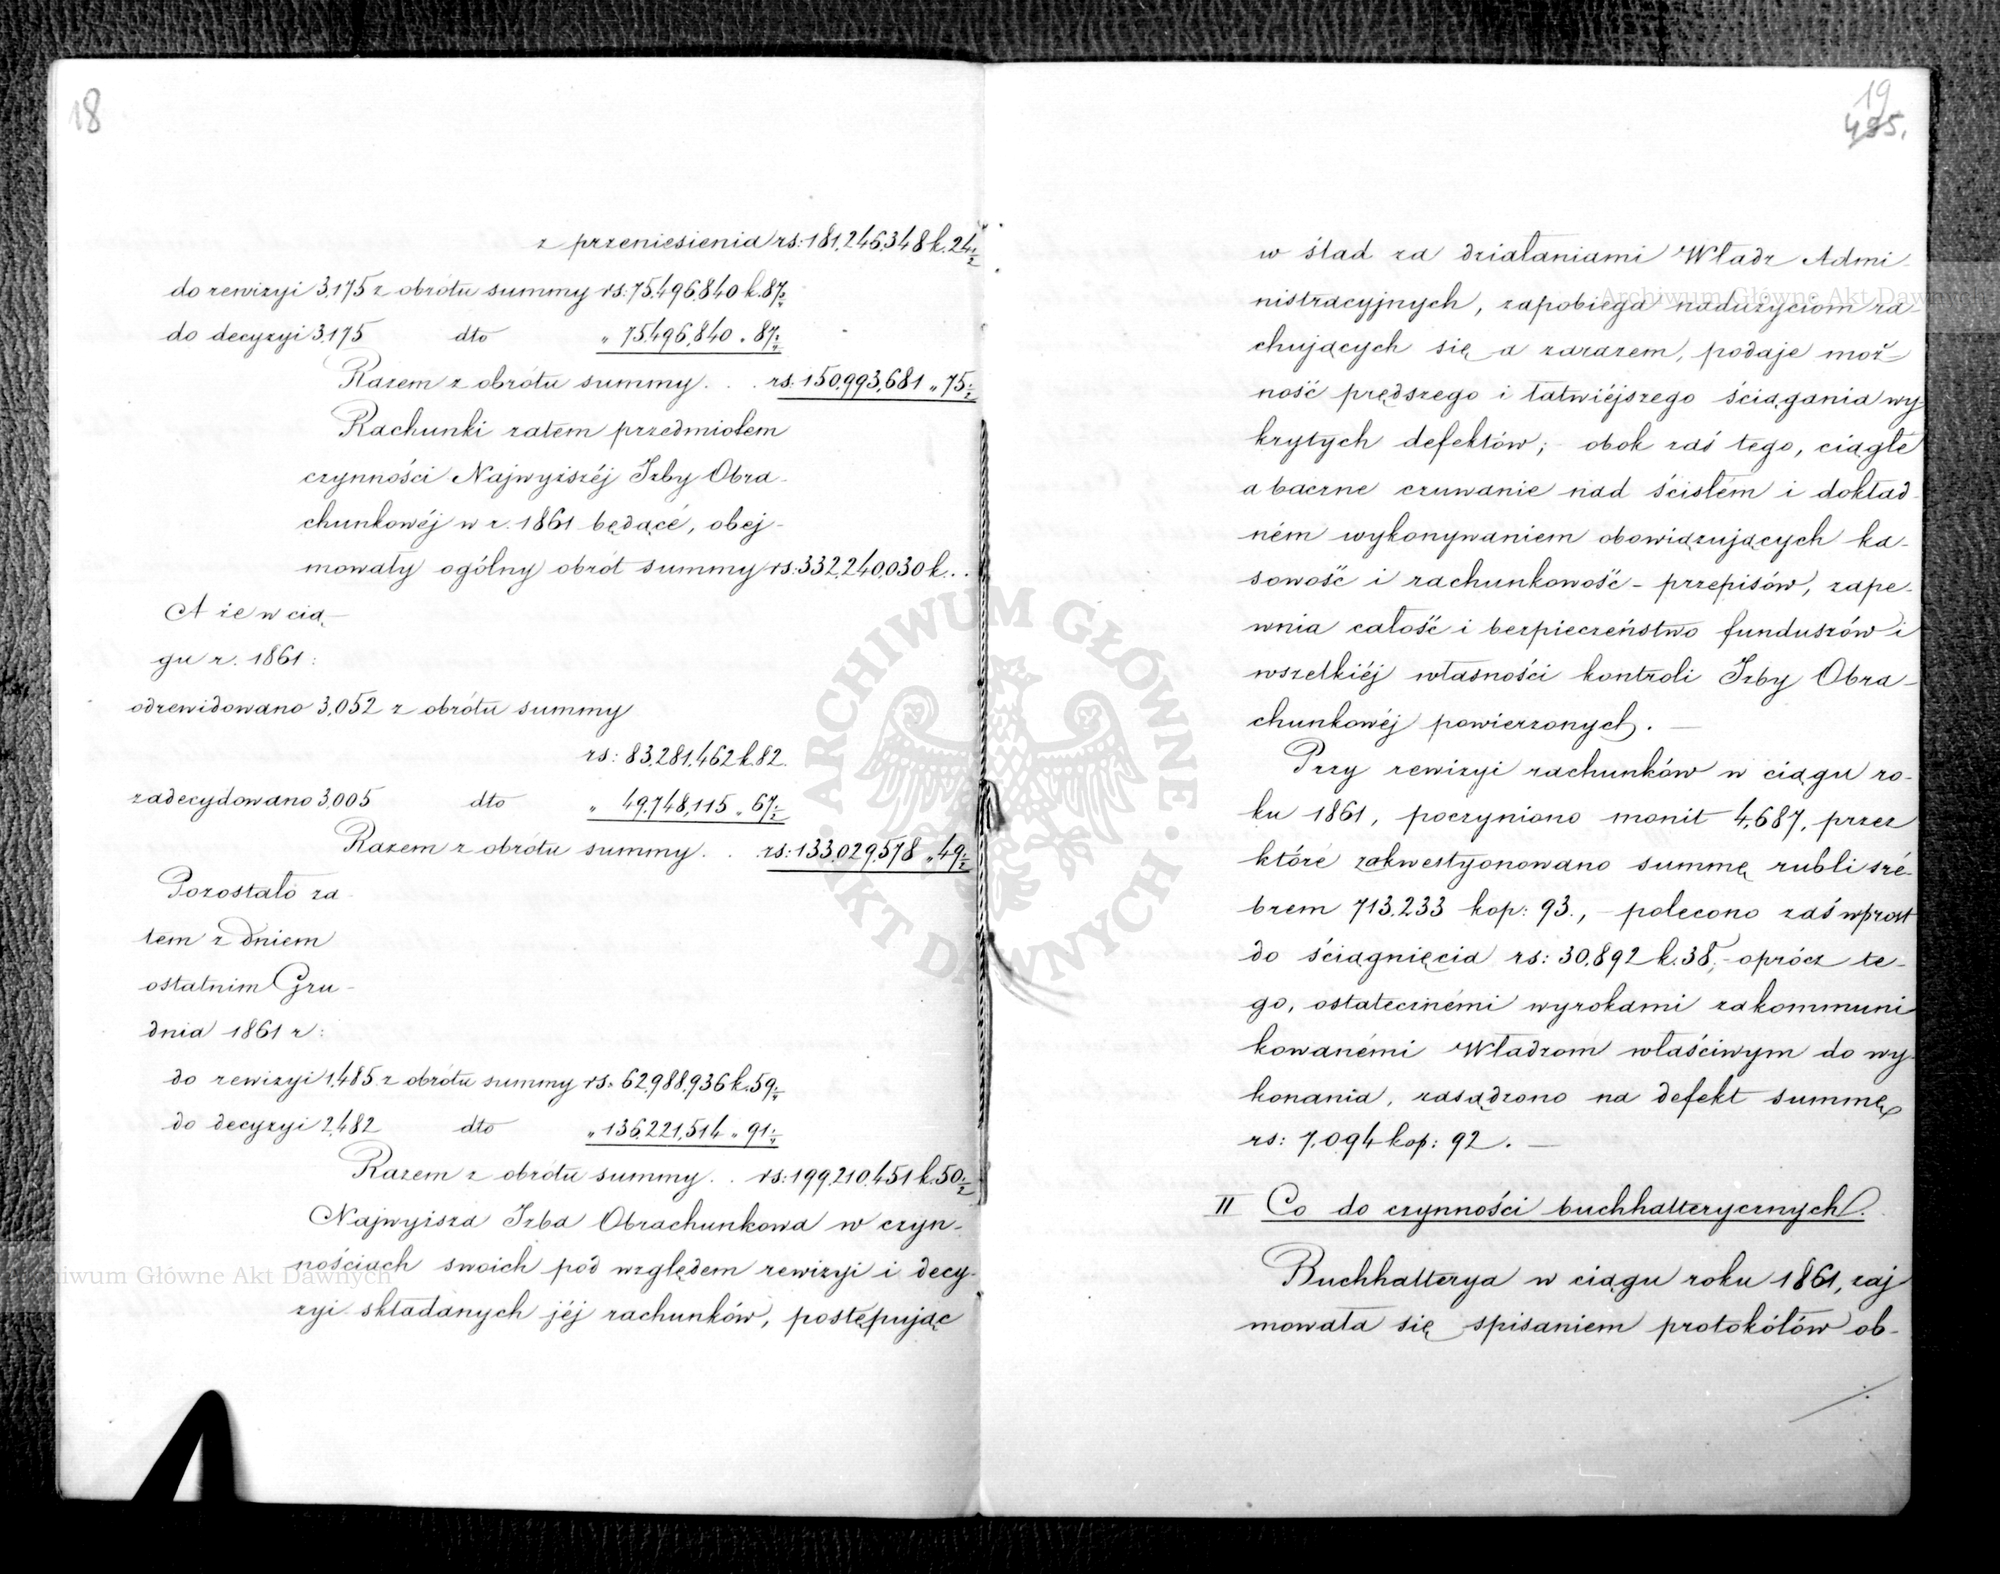 18
z przeniesienia rs: 181,246,348 k. 24½
do rewizyi 3,175 z obrótu summy rs: 75,496,840 k. 87¾
do decyzyi 3,175 dto „ 75,496,840 „ 87¾
Razem z obrótu summy . . rs: 150,993,681 „ 75½
Rachunki zatem przedmiotem
czynności Najwyższéj Izby Obra-
chunkowéj w r. 1861 będącé, obej-
mowały ogólny obrót summy rs: 332,240,030 k. . .
A że w cią-
gu r. 1861:
odrewidowano 3,052 z obrótu summy
rs: 83,281,462 k. 82.
zadecydowano 3,005 dto „ 49,748,115 „ 67½
Razem z obrótu summy . . rs: 133,029,578 „ 49½
Pozostało za-
tem z dniem
ostatnim Gru-
dnia 1861 r:
do rewizyi 1,485 z obrótu summy rs: 62,988,936 k. 59¼
do decyzyi 2,482 dto „ 136,221,514 „ 91¼
Razem z obrótu summy . . rs: 199,210,451 k. 50½
Najwyższa Izba Obrachunkowa w czyn-
nościach swoich pod względem rewizyi i decy-
zyi składanych jéj rachunków, postępując
19
495.
w ślad za działaniami Władz Admi-
nistracyjnych, zapobiega nadużyciom ra-
chujących się a zarazem, podaje moż-
ność prędszego i łatwiéjszego ściągania wy
krytych defektów; - obok zaś tego, ciągłé
a baczne czuwanie nad ścisłém i dokład-
ném wykonywaniem obowiązujących ka-
sowość i rachunkowość - przepisów, zape-
wnia całość i bezpieczeństwo funduszów i
wszelkiéj własności kontroli Izby Obra-
chunkowéj powierzonych. —
Przy rewizyi rachunków w ciągu ro-
ku 1861, poczyniono monit 4,687, przez
któré zakwestyonowano summę rubli sré-
brem 713,233 kop: 93., - polecono zaś wprost
do ściągnięcia rs: 30,892 k. 38, - oprócz te-
go, ostatecznémi wyrokami zakommuni
kowanémi Władzom właściwym do wy-
konania, zasądzono na defekt summę
rs: 7,094 kop: 92. —
II Co do czynności buchhalterycznych.
Buchhalterya w ciągu roku 1861, zaj
mowała się spisaniem protokółów ob-
ARCHIWUM GŁÓWNE AKT DAWNYCH
Archiwum Główne Akt Dawnych
Archiwum Główne Akt Dawnych